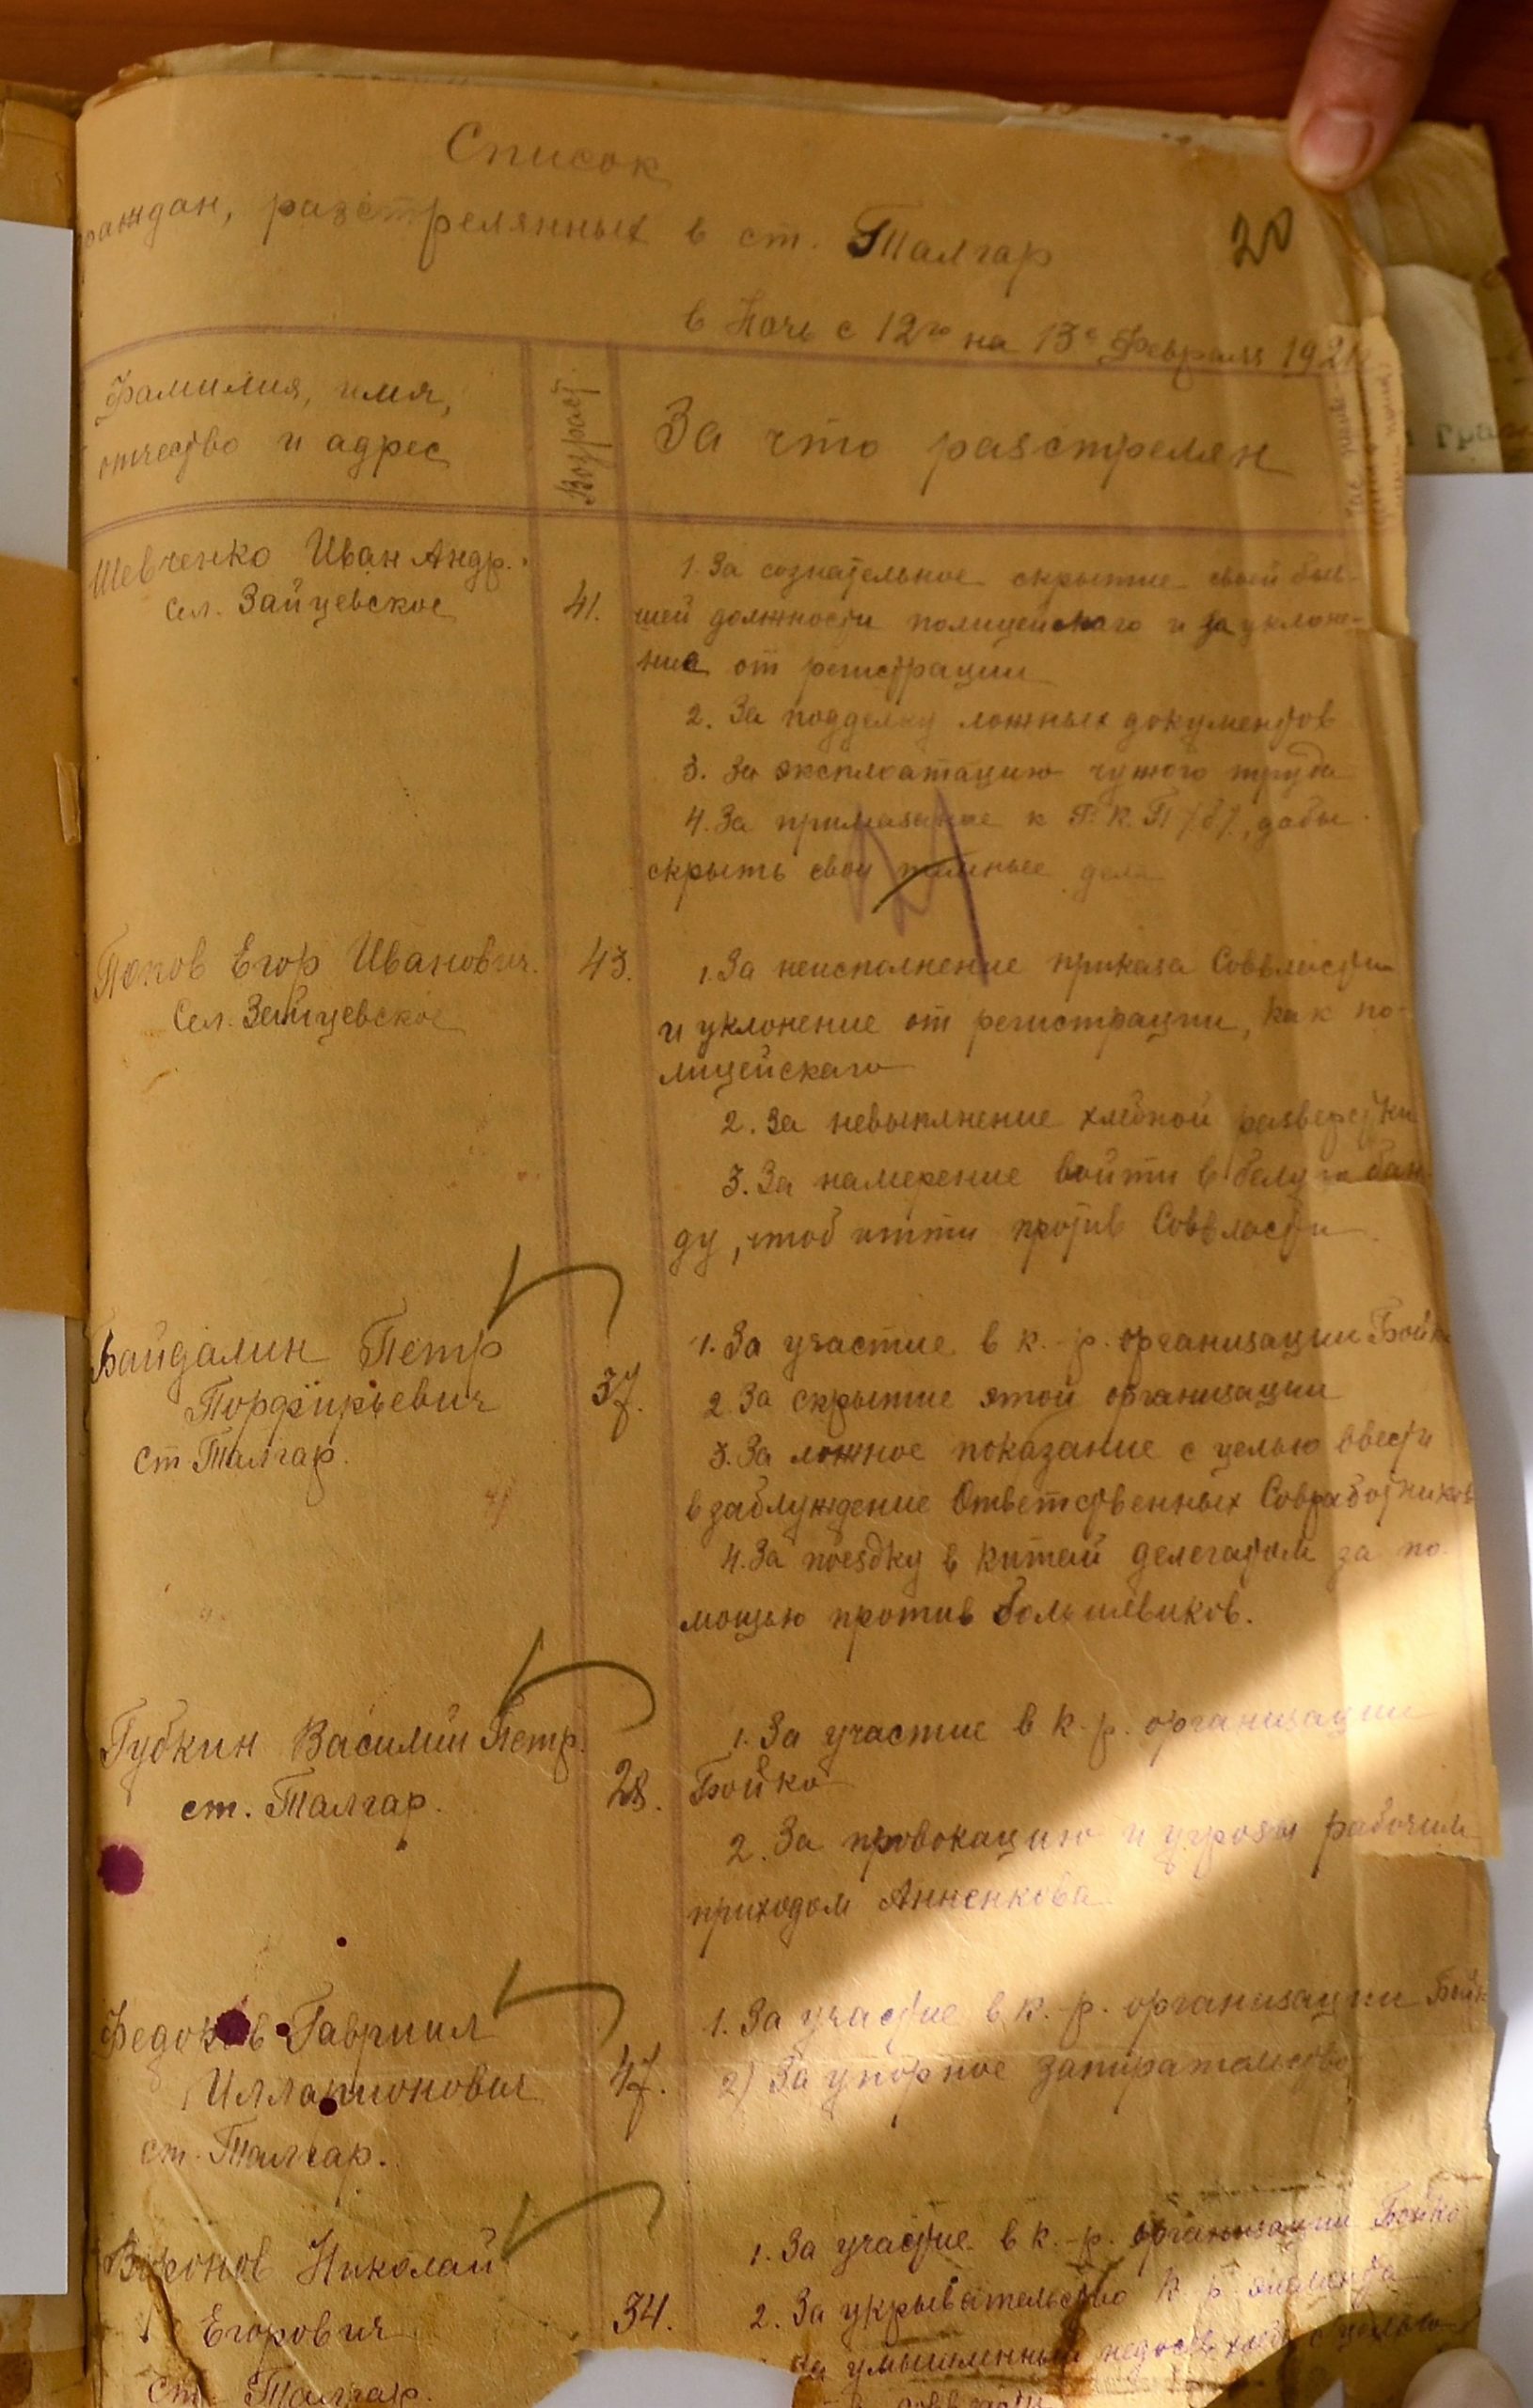 Список
раждан, разстрелянных в ст. Талгар
20
в Ночь с 12го на 13е Февраля 1921
Фамилия, имя,
отчество и адрес
Возраст
За что разстрелян
Шевченко Иван Андр.
Сел. Зайцевское
41.
1. За сознательное скрытие своей быв-
шей должности полицейскаго и за уклоне-
ние от регистрации
2. За подделку ложных документов
3. За эксплоатацию чужого труда
4. За примазание к Р.К.П /б/, дабы
скрыть свои темные дела
Попов Егор Иванович.
Сел. Зайцевское
43.
1. За неисполнение приказа Соввласти
и уклонение от регистрации, как по-
лицейскаго
2. За невыплнение хлебной разверстки
3. За намерение войти в белую бан-
ду, чтоб итти против Соввласти
Байдалин Петр
Порфирьевич
ст. Талгар.
37.
1. За участие в к.-р. организации Бойко
2. За скрытие этой организации
3. За ложное показание с целью ввести
в заблуждение Ответственных Совработников
4. За поездку в Китай делегатом за по-
мощью против большевиков.
Губкин Василий Петр.
ст. Талгар.
28.
1. За участие в к.-р. организации
Бойко
2. За провокацию и угрозы рабочим
приходом Анненкова
Гавриил
Илларионович
ст. Талгар.
47.
1. За участие в к.-р. организации Бойк
2) За упорное запирательство
Воронов Николай
Егорович
ст. Талгар.
34.
1. За участие в к.-р. организации Бойко
2. За укрывательство к.-р. элемента
за умышленный недосев хлеба с целью